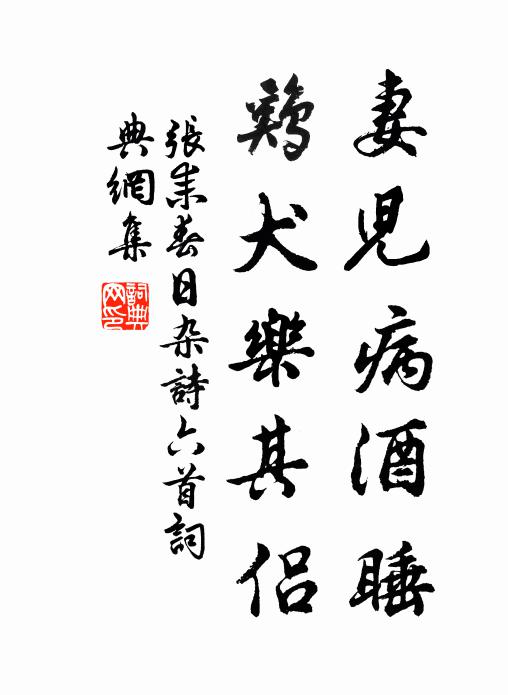 妻児病酒睡
鷄犬樂其侣
張耒春日杂詩六首詞
典網集
詞典網印